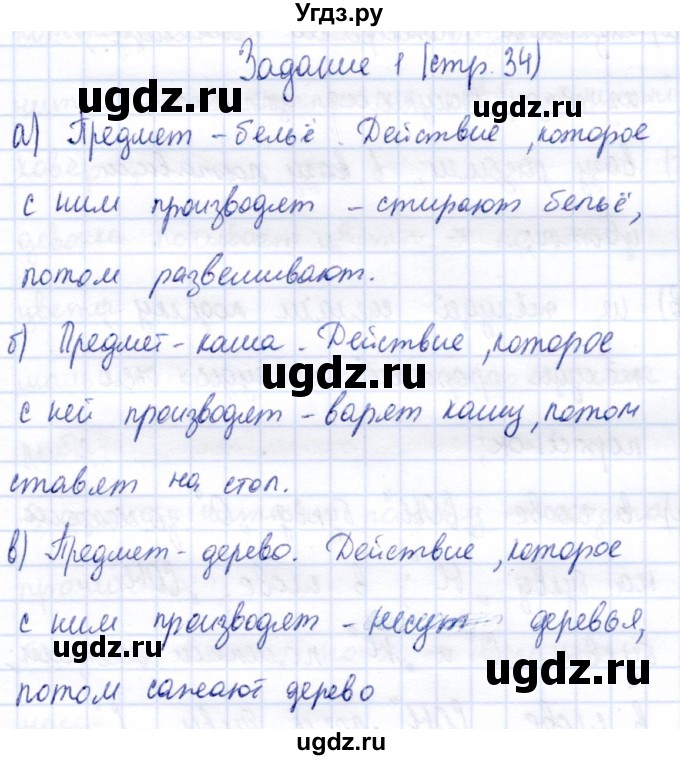 Угдз.ру
Задание 1 (стр. 34)
ugdz.ru ugdz.ru
а) Предмет - бельё. Действие, которое
с ним производят - стирают бельё,
потом развешивают.
ugdz.ru
б) Предмет - каша. Действие, которое
с ней производят - варят кашу, потом
ставят на стол.
ugdz.ru ugdz.ru
в) Предмет - дерево. Действие, которое
с ним производят - несут деревья,
ugdz.ru
потом сажают дерево
ugdz.ru